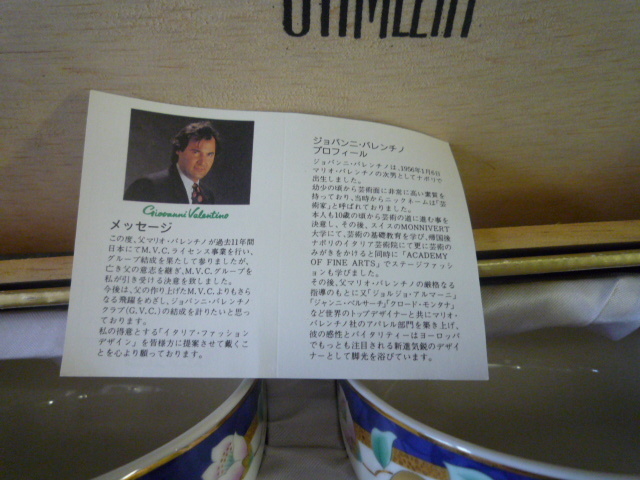 Giovanni Valentino
メッセージ
この度、父マリオ・バレンチノが過去11年間
日本にてM.V.C.ライセンス事業を行い、
グループ結成を果たして参りましたが、
亡き父の意志を継ぎ、M.V.C.グループを
私が引き受ける決意を致しました。
今後は、父の作り上げたM.V.C.よりもさら
なる飛躍をめざし、ジョバンニ・バレンチノ
クラブ(G.V.C.)の結成を計りたいと思っ
ております。
私の得意とする「イタリア・ファッション
デザイン」を皆様方に提案させて戴くこ
とを心より願っております。
ジョバンニ・バレンチノ
プロフィール
ジョバンニ・バレンチノは、1956年1月6日
マリオ・バレンチノの次男としてナポリで
出生しました。
幼少の頃から芸術面に非常に高い素質を
持っており、当時からニックネームは「芸
術家」と呼ばれておりました。
本人も10歳の頃から芸術の道に進む事を
決意し、その後、スイスのMONNIVERT
大学にて、芸術の基礎教育を学び、帰国後
ナポリのイタリア芸術院にて更に芸術の
みがきをかけると同時に「ACADEMY
OF FINE ARTS」でステージファッシ
ョンも学びました。
その後、父マリオ・バレンチノの厳格なる
指導のもとに又「ジョルジョ・アルマーニ」
「ジャンニ・ベルサーチ」「クロード・モンタナ」
など世界のトップデザイナーと共にマリオ・
バレンチノ社のアパレル部門を築き上げ、
彼の感性とバイタリティーはヨーロッパ
でもっとも注目される新進気鋭のデザイ
ナーとして脚光を浴びています。